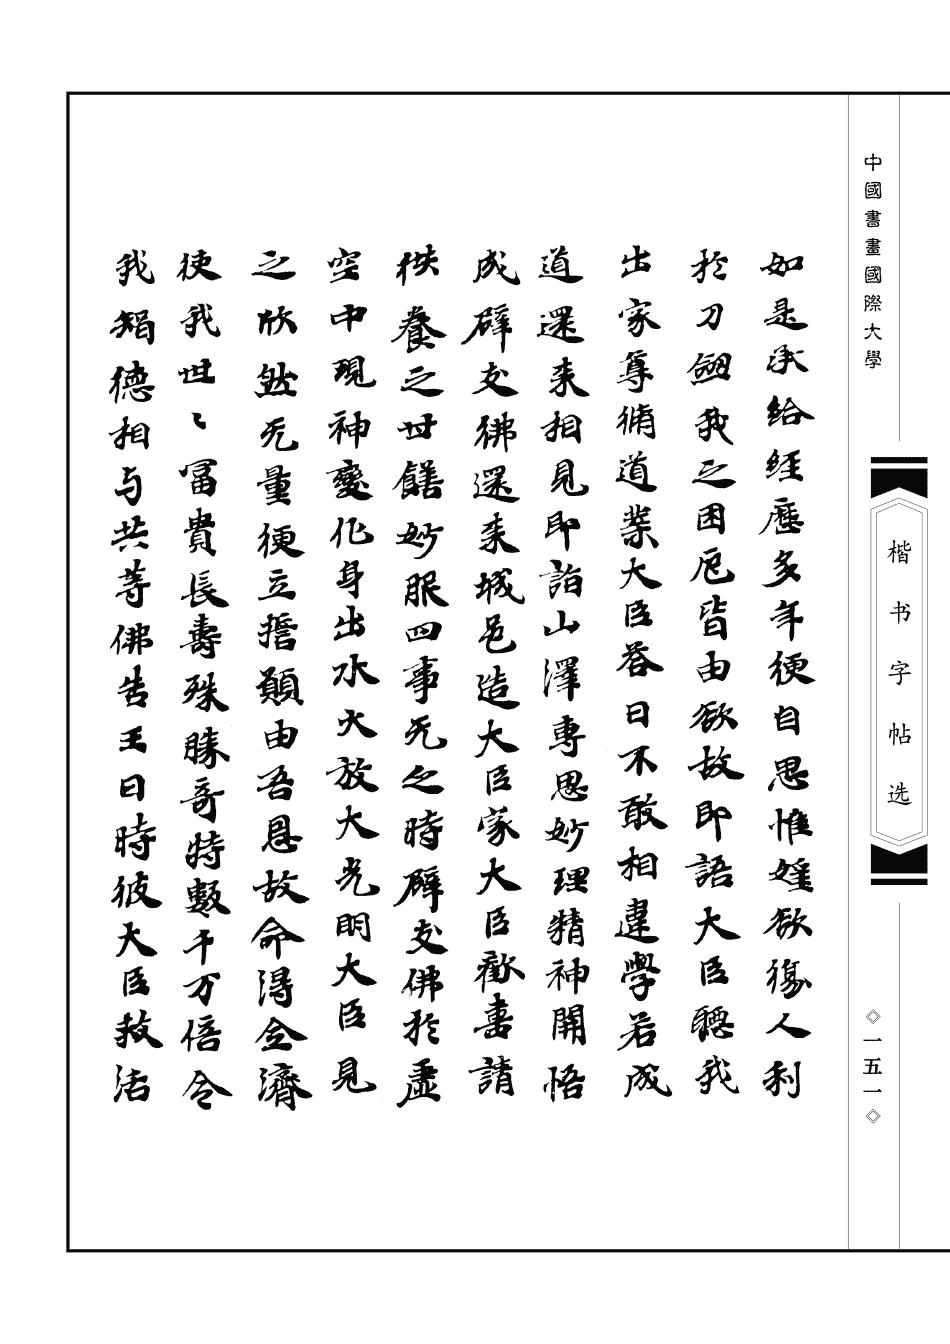 中國書畫國際大學
楷书字帖选
◇一五一◇
如是承給經歷多年便自思惟婬欲傷人利
於刀劍我之困厄皆由欲故即語大臣聽我
出家尊脩道業大臣荅曰不敢相違學若成
道還来相見即詣山澤專思妙理精神開悟
成辟支佛還来城邑造大臣家大臣歡喜請
供養之世饍妙服四事无乏時辟支佛於虛
空中現神變化身出水火放大光明大臣見
之欣然无量便立誓願由吾恩故命得全濟
使我世〻冨貴長壽殊勝奇特數千万倍令
我智德相与共等佛告王曰時彼大臣救活